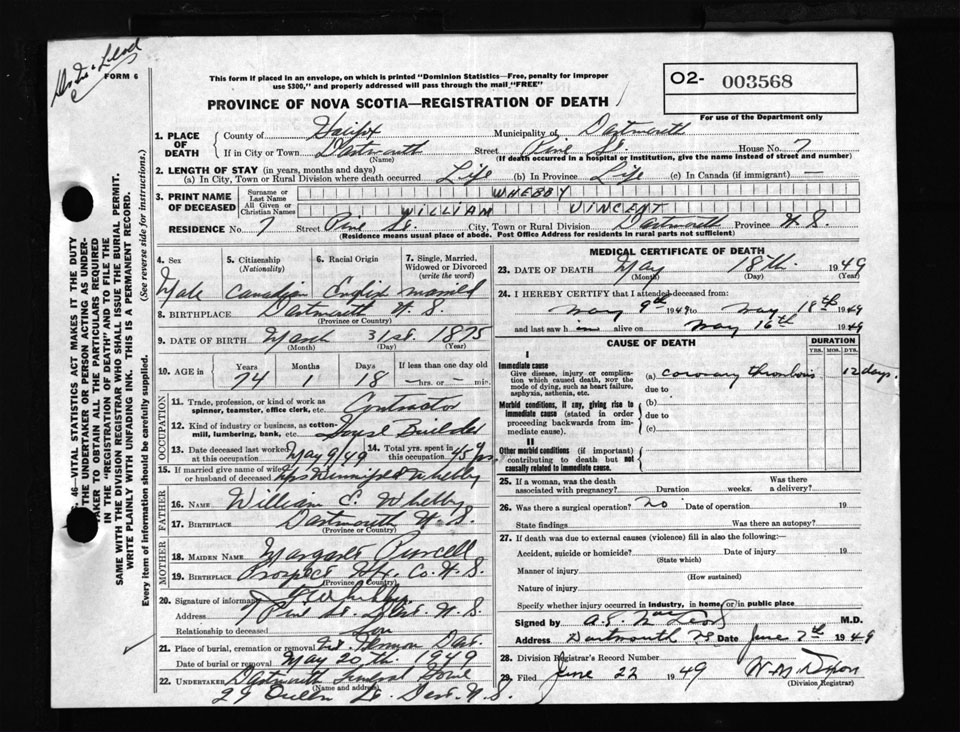 Dr. Mc Leod
FORM 6
This form if placed in an envelope, on which is printed "Dominion Statistics—Free, penalty for improper
use $300," and properly addressed will pass through the mail "FREE"
O2- 003568
For use of the Department only
PROVINCE OF NOVA SCOTIA—REGISTRATION OF DEATH
1. PLACE OF DEATH County of Halifax Municipality of Dartmouth
If in City or Town Dartmouth (Name) Street Pine St. House No. 7
(If death occurred in a hospital or institution, give the name instead of street and number)
2. LENGTH OF STAY (in years, months and days)
(a) In City, Town or Rural Division where death occurred Life (b) In Province Life (c) In Canada (if immigrant) —
3. PRINT NAME OF DECEASED Surname or Last Name WHEBBY
All Given or Christian Names WILLIAM VINCENT
RESIDENCE No. 7 Street Pine St. City, Town or Rural Division Dartmouth Province N.S.
(Residence means usual place of abode. Post Office Address for residents in rural parts not sufficient)
4. Sex 5. Citizenship (Nationality) 6. Racial Origin 7. Single, Married, Widowed or Divorced (write the word)
Male Canadian English married
8. BIRTHPLACE Dartmouth N.S.
(Province or Country)
9. DATE OF BIRTH March 31st. 1875
(Month) (Day) (Year)
10. AGE in Years Months Days If less than one day old
74 1 18 —hrs. or —min.
11. Trade, profession, or kind of work as spinner, teamster, office clerk, etc. Contractor
12. Kind of industry or business, as cotton-mill, lumbering, bank, etc. House Builder
13. Date deceased last worked at this occupation May 9/49 14. Total yrs. spent in this occupation 45 yrs
15. If married give name of wife or husband of deceased Mrs Winnifred Whebby
FATHER
16. NAME William E. Whebby
17. BIRTHPLACE Dartmouth N.S.
(Province or Country)
MOTHER
18. MAIDEN NAME Margaret Purcell
19. BIRTHPLACE Prospect Hfx. Co. N.S.
(Province or Country)
20. Signature of informant
Address 7 Pine St. Dart. N.S.
Relationship to deceased Son
21. Place of burial, cremation or removal Mt. Hermon Dart.
Date of burial or removal May 20 th. 1949
22. UNDERTAKER Dartmouth Funeral Home
(Name and address)
29 Queen St. Dart. N.S.
MEDICAL CERTIFICATE OF DEATH
23. DATE OF DEATH May 18th. 1949
(Month) (Day) (Year)
24. I HEREBY CERTIFY that I attended deceased from:
May 9th 1949 to May 18th 1949
and last saw him alive on May 16th 1949
CAUSE OF DEATH DURATION
YRS. MOS. DYS.
I
Immediate cause
Give disease, injury or complication which caused death, NOT the mode of dying, such as heart failure, asphyxia, asthenia, etc.
(a) coronary thrombosis 12 days.
due to
Morbid conditions, if any, giving rise to immediate cause (stated in order proceeding backwards from immediate cause).
(b)
due to
(c)
II
Other morbid conditions (if important) contributing to death but not causally related to immediate cause.
25. If a woman, was the death associated with pregnancy? Duration weeks. Was there a delivery?
26. Was there a surgical operation? no Date of operation 19
State findings Was there an autopsy?
27. If death was due to external causes (violence) fill in also the following:—
Accident, suicide or homicide? Date of injury 19
(State which)
Manner of injury
(How sustained)
Nature of injury
Specify whether injury occurred in industry, in home, or in public place
Signed by A.E. MacLeod M.D.
Address Dartmouth NS Date June 7th 1949
28. Division Registrar's Record Number
29. Filed June 22 1949
(Division Registrar)
S. 46 —VITAL STATISTICS ACT MAKES IT THE DUTY
THE UNDERTAKER OR PERSON ACTING AS UNDER-
TAKER TO OBTAIN ALL THE PARTICULARS REQUIRED
IN THE "REGISTRATION OF DEATH" AND TO FILE THE
SAME WITH THE DIVISION REGISTRAR WHO SHALL ISSUE THE BURIAL PERMIT.
WRITE PLAINLY WITH UNFADING INK. THIS IS A PERMANENT RECORD.
Every item of information should be carefully supplied. (See reverse side for instructions.)